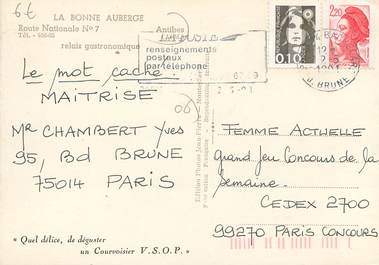 6€
LA BONNE AUBERGE
Route Nationale Nº 7
Tél. - 400-65
relais gastronomique
Antibes
AUDIO
renseignements
postaux
par téléphone
0,10
2,20
BRUNE
Le mot caché:
MAITRISE
06
Mr CHAMBERT Yves
95, Bd BRUNE
75014 PARIS
FEMME ACTUELLE
grand Jeu Concours de la
Semaine.
CEDEX 2700
99270 PARIS CONCOURS
" Quel délice, de déguster
un Courvoisier V.S.O.P. "